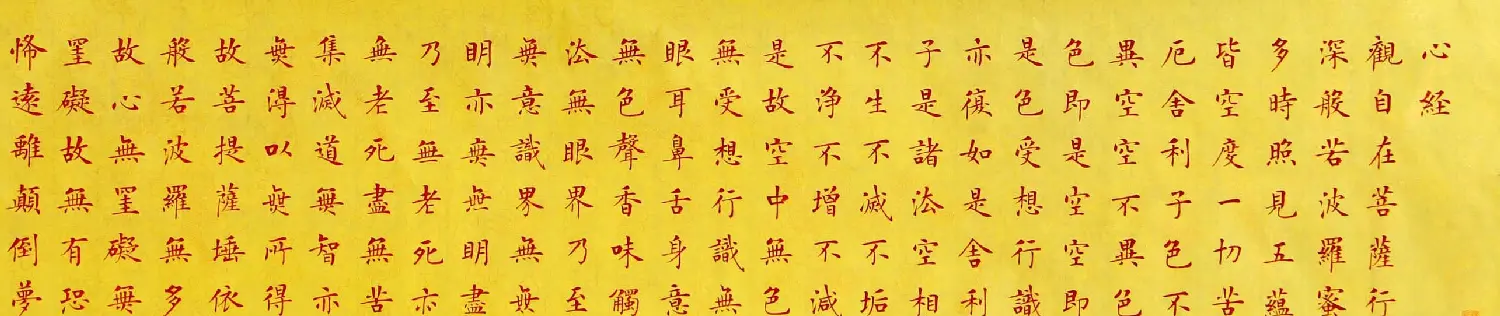 心経
觀自在菩薩行
深般若波羅蜜
多時照見五蘊
皆空度一切苦
厄舍利子色不
異空空不異色
色即是空空即
是色受想行識
亦復如是舍利
子是諸法空相
不生不滅不垢
不淨不增不減
是故空中無色
無受想行識無
眼耳鼻舌身意
無色聲香味觸
法無眼界乃至
無意識界無無
明亦無無明盡
乃至無老死亦
無老死盡無苦
集滅道無智亦
無得以無所得
故菩提薩埵依
般若波羅無多
故心無罣礙無
罣礙故無有恐
怖遠離顛倒夢